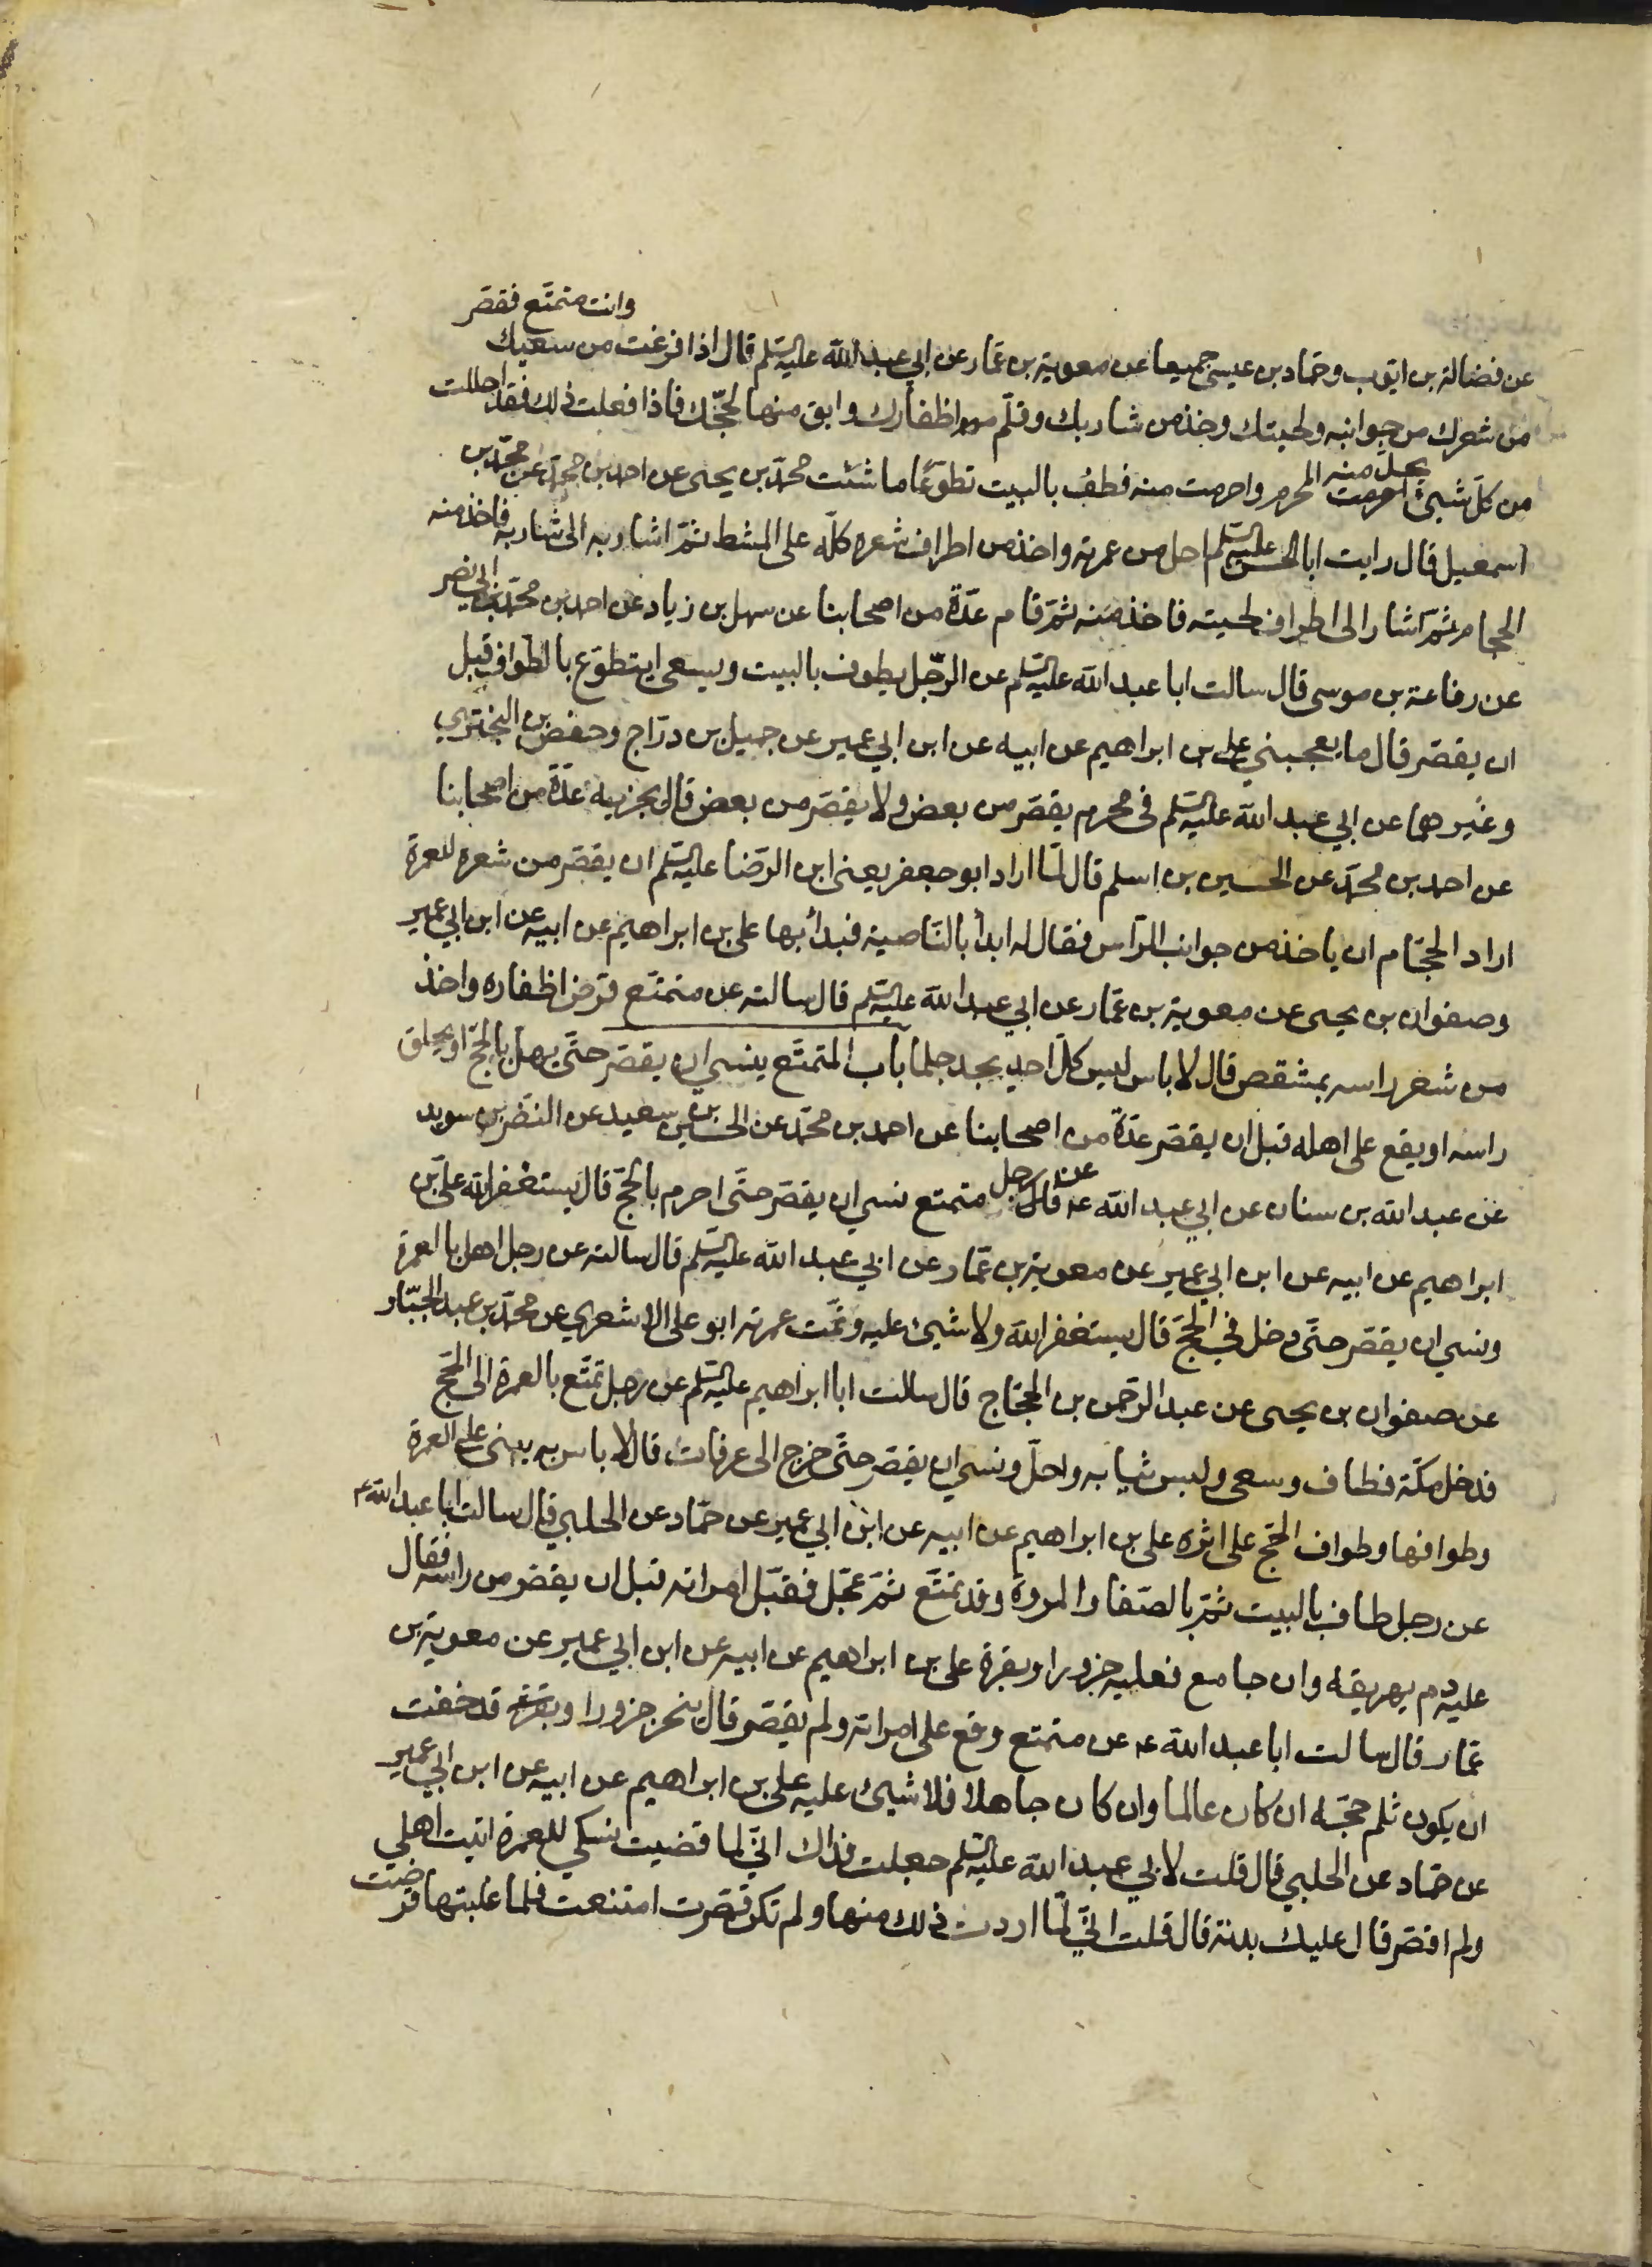 عن فضالة بن ايوب وحماد بن عيسى جميعا عن معوية بن عمار عن ابي عبد الله عليه السلم قال اذا فرغت من سعيك وانت متمتع فقصر
من شعرك من جوانبه ولحيتك وخذ من شاربك وقلم من اظفارك وابق منها لحجك فاذا فعلت ذلك فقد احللت
من كل شيئ يحل منه المحرم واحرمت منه فطف بالبيت تطوعا ما شئت محمد بن يحيى عن احمد بن محمد عن محمد بن
اسمعيل قال رايت ابا الحسن عليه السلم احل من عمرته واخذ من اطراف شعره كله على المشط ثم اشار به الى شاربه فاخذ منه
الحجام ثم اشار الى اطراف لحيته فاخذ منه ثم قام عدة من اصحابنا عن سهل بن زياد عن احمد بن محمد بن ابي نصر
عن رفاعة بن موسى قال سالت ابا عبد الله عليه السلم عن الرجل يطوف بالبيت ويسعى ايتطوع بالطواف قبل
ان يقصر قال ما يعجبني علي بن ابراهيم عن ابيه عن ابن ابي عمير عن جميل بن دراج وحفص بن البختري
وغيرهما عن ابي عبد الله عليه السلم في محرم يقصر من بعض ولا يقصر من بعض قال يجزيه عدة من اصحابنا
عن احمد بن محمد عن الحسين بن اسلم قال لما اراد ابو جعفر يعني ابن الرضا عليه السلم ان يقصر من شعره للعمرة
اراد الحجام ان ياخذ من جوانب الراس فقال له ابدأ بالناصية فبدأ بها علي بن ابراهيم عن ابيه عن ابن ابي عمير
وصفوان بن يحيى عن معوية بن عمار عن ابي عبد الله عليه السلم قال سالته عن متمتع قرض اظفاره واخذ
من شعر راسه بمشقص قال لا باس ليس كل احد يجد جلما باب المتمتع ينسي ان يقصر حتى يهل بالحج او يحلق
راسه او يقع على اهله قبل ان يقصر عدة من اصحابنا عن احمد بن محمد عن الحسين بن سعيد عن النضر بن سويد
عن عبد الله بن سنان عن ابي عبد الله عه قال عن رجل متمتع نسي ان يقصر حتى احرم بالحج قال يستغفر الله علي بن
ابراهيم عن ابيه عن ابن ابي عمير عن معوية بن عمار عن ابي عبد الله عليه السلم قال سالته عن رجل اهل بالعمرة
ونسي ان يقصر حتى دخل في الحج قال يستغفر الله ولا شيئ عليه وتمت عمرته ابو علي الاشعري عن محمد بن عبد الجبار
عن صفوان بن يحيى عن عبد الرحمن بن الحجاج قال سالت ابا ابراهيم عليه السلم عن رجل تمتع بالعمرة الى الحج
فدخل مكة فطاف وسعى ولبس ثيابه واحل ونسي ان يقصر حتى خرج الى عرفات قال لا باس به يبنى على العمرة
وطوافها وطواف الحج على اثره علي بن ابراهيم عن ابيه عن ابن ابي عمير عن حماد عن الحلبي قال سالت ابا عبد الله ع
عن رجل طاف بالبيت ثم بالصفا والمروة وقد تمتع ثم عجل فقبل امراته قبل ان يقصر من راسه فقال
عليه دم يهريقه وان جامع فعليه جزورا وبقرة علي بن ابراهيم عن ابيه عن ابن ابي عمير عن معوية بن
عمار قال سالت ابا عبد الله عه عن متمتع وقع على امراته ولم يقصر قال ينحر جزورا وبقرة قد خفت
ان يكون ثلم حجه ان كان عالما وان كان جاهلا فلا شيئ عليه علي بن ابراهيم عن ابيه عن ابن ابي عمير
عن حماد عن الحلبي قال قلت لابي عبد الله عليه السلم جعلت فداك اني لما قضيت نسكي للعمرة اتيت اهلي
ولم اقصر قال عليك بدنة قال قلت اني لما اردت ذلك منها ولم تكن قصرت امتنعت فلما غلبتها قرضت